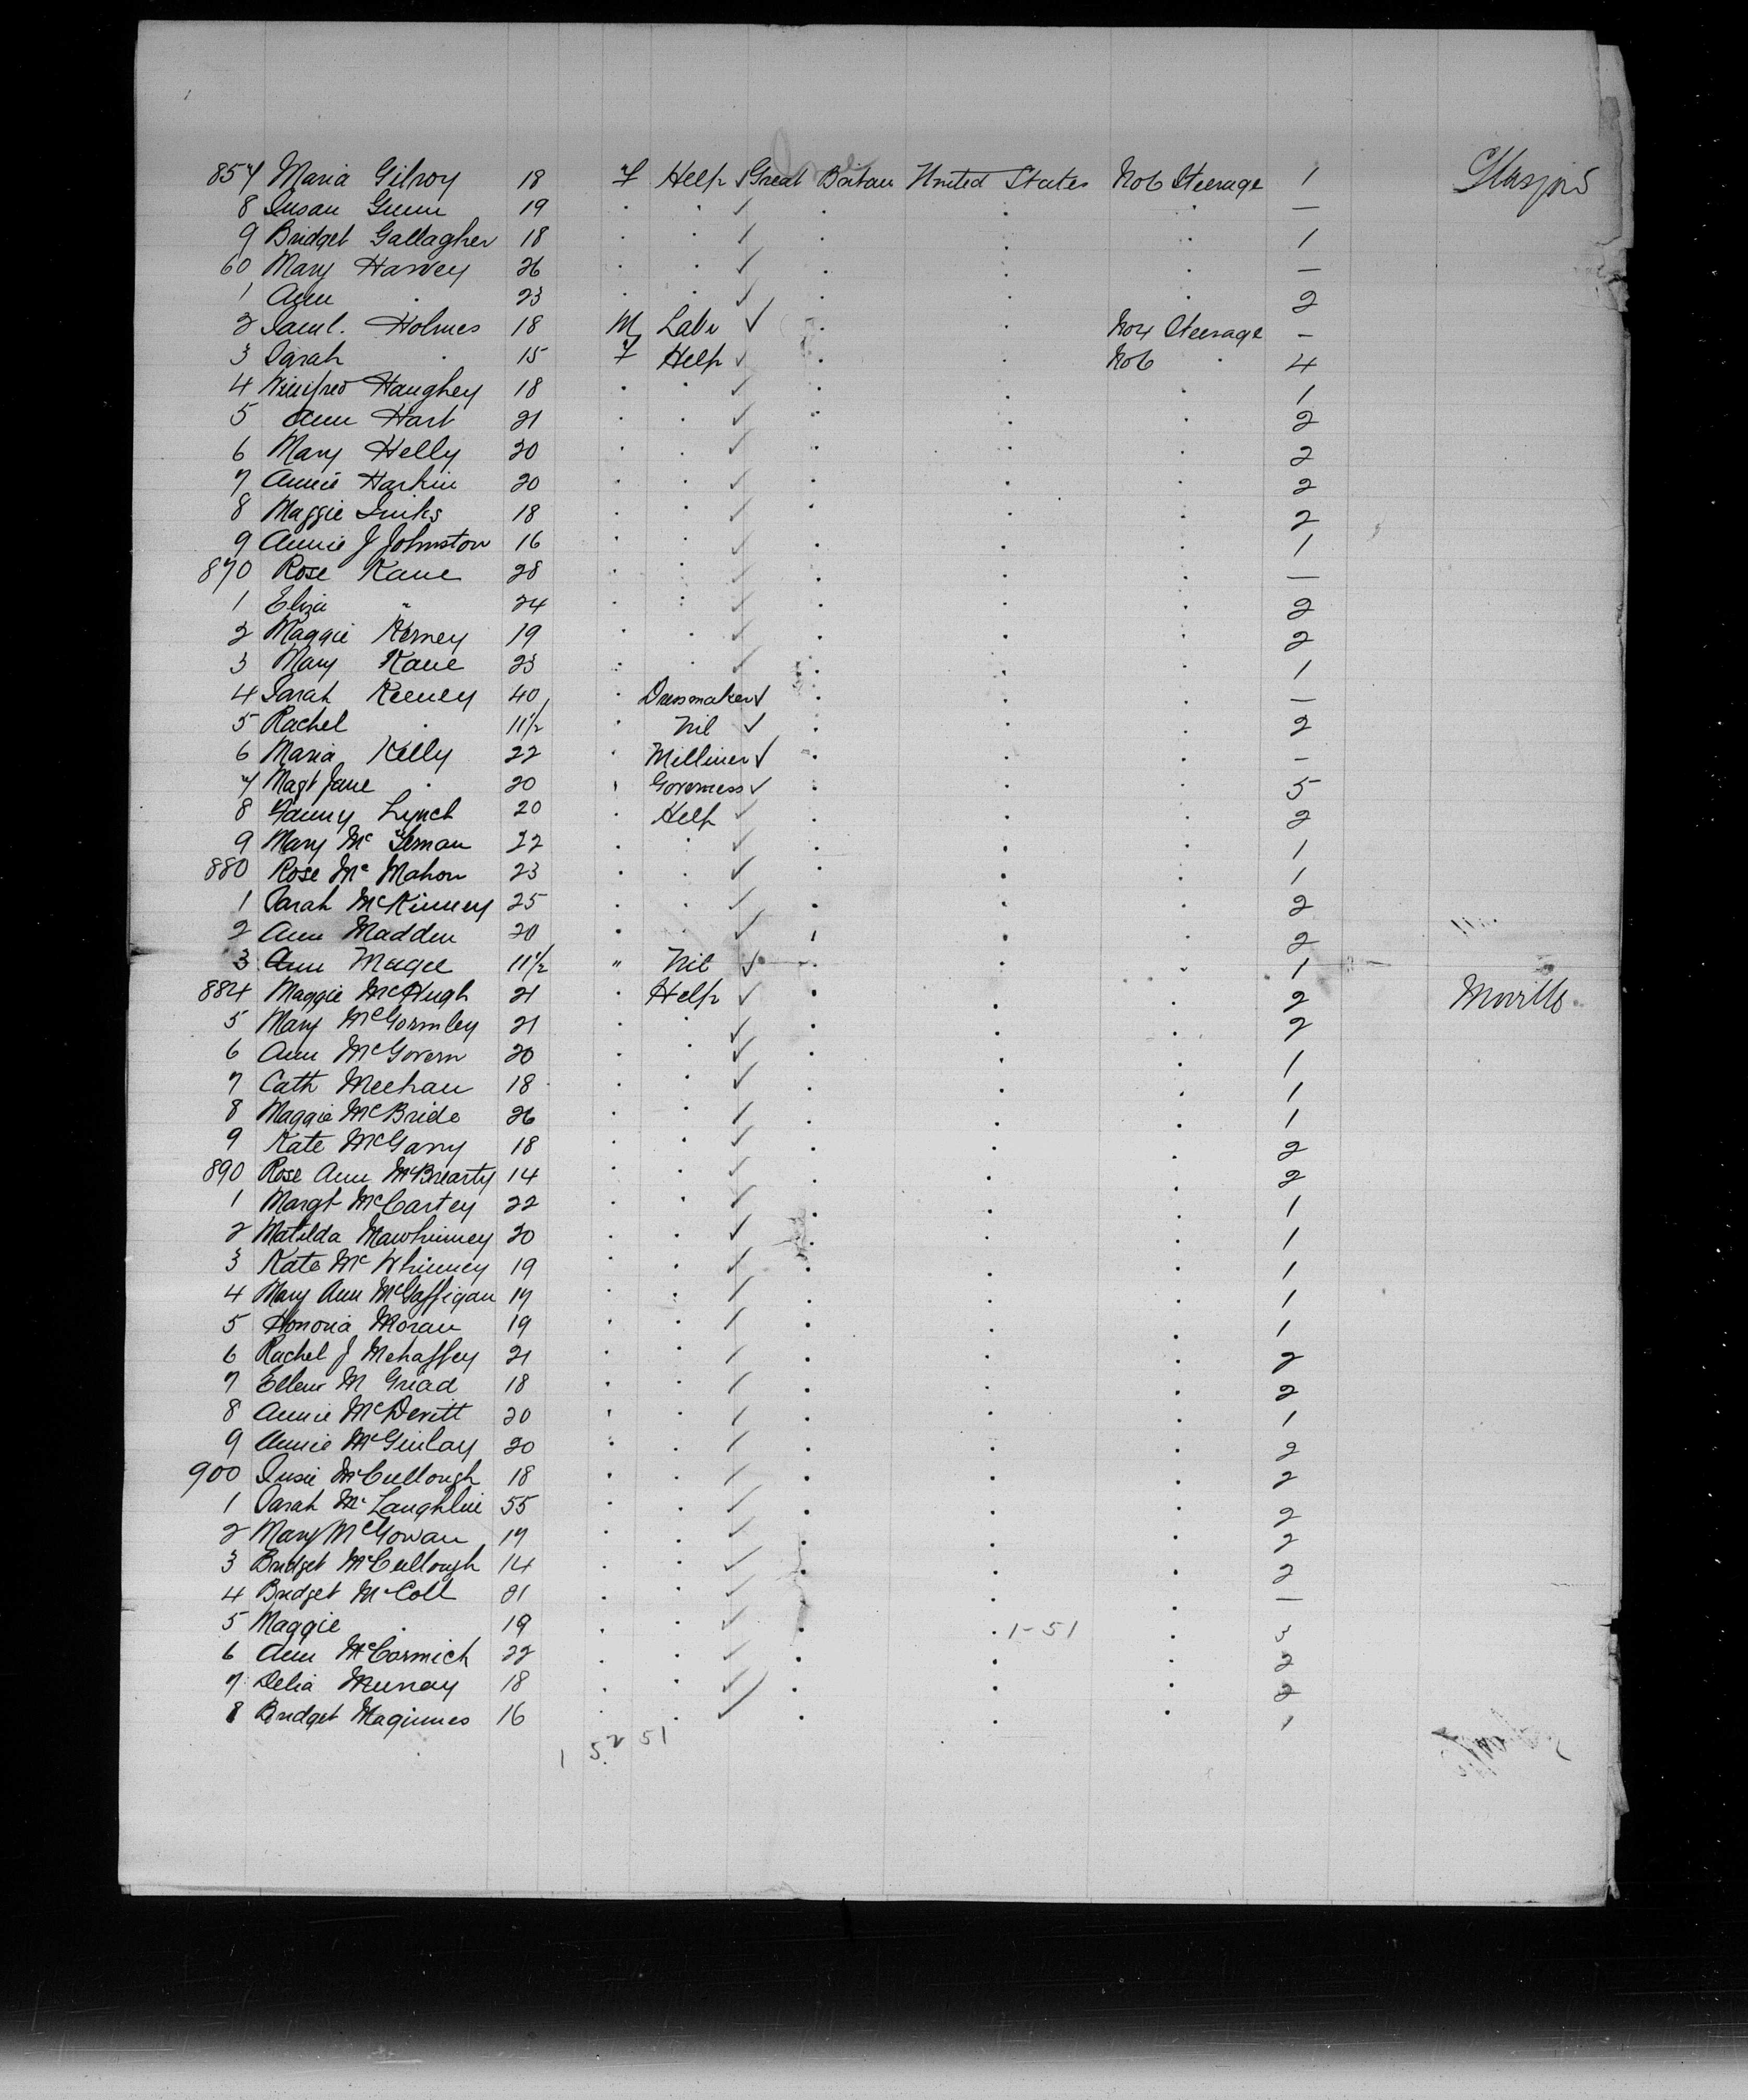 857 Maria Gilroy 18 F Help ✓ Great Britain United States No 6 Steerage 1 Glasgow
8 Susan Gunn 19 . . ✓ . . . —
9 Bridget Gallagher 18 . . ✓ . . . 1
60 Mary Harvey 26 . . ✓ . . . —
1 Ann . 23 . . ✓ . . . 2
2 Saml. Holmes 18 M Labr ✓ . . No 4 Steerage -
3 Sarah . 15 F Help ✓ . . No 6 . 4
4 Winifred Haughey 18 . . ✓ . . . 1
5 Ann Hart 21 . . ✓ . . . 2
6 Mary Helly 20 . . ✓ . . . 2
7 Annie Harkin 20 . . ✓ . . . 2
8 Maggie 18 . . ✓ . . . 2
9 Annie J Johnston 16 . . ✓ . . . 1
870 Rose Kane 28 . . ✓ . . . —
1 Eliza " 24 . . ✓ . . . 2
2 Maggie Kerney 19 . . ✓ . . . 2
3 Mary Kane 23 . . ✓ . . . 1
4 Sarah Keeney 40 . Dressmaker ✓ . . . —
5 Rachel . 11½ . Nil ✓ . . . 2
6 Maria Kelly 22 . Milliner ✓ . . . -
7 Magt Jane . 20 . Governess ✓ . . . 5
8 Fanny Lynch 20 . Help ✓ . . . 2
9 Mary Mc 22 . . ✓ . . . 1
880 Rose Mc Mahon 23 . . ✓ . . . 1
1 Sarah McKinney 25 . . ✓ . . . 2
2 Ann Madden 20 . . ✓ . . . 2
3 Ann Magee 11½ " Nil ✓ . . . 1
884 Maggie McHugh 21 . Help ✓ . . . 2 Moville
5 Mary McGormley 21 . . ✓ . . . 2
6 Ann McGovern 20 . . ✓ . . . 1
7 Cath Meehan 18 . . ✓ . . . 1
8 Maggie McBride 26 . . ✓ . . . 1
9 Kate McGarry 18 . . ✓ . . . 2
890 Rose Ann McBrearty 14 . . ✓ . . . 2
1 Margt McCartey 22 . . ✓ . . . 1
2 Matilda Mawhinney 20 . . ✓ . . . 1
3 Kate Mc Whinney 19 . . ✓ . . . 1
4 Mary Ann McGaffigan 17 . . ✓ . . . 1
5 Honoria Moran 19 . . ✓ . . . 1
6 Rachel J Mehaffey 21 . . ✓ . . . 2
7 Ellen M Griad 18 . . ✓ . . . 2
8 Annie McDevitt 20 . . ✓ . . . 1
9 Annie McGinlay 20 . . ✓ . . . 2
900 Susie McCullough 18 . . ✓ . . . 2
1 Sarah McLaughlin 55 . . ✓ . . . 2
2 Mary McGowan 17 . . ✓ . . . 2
3 Bridget McCullough 14 . . ✓ . . . 2
4 Bridget McColl 21 . . ✓ . . . —
5 Maggie . 19 . . ✓ . . 1-51 . 3
6 Ann McCormick 22 . . ✓ . . . 2
7 Delia Murray 18 . . ✓ . . . 2
8 Bridget Maginnes 16 . . ✓ . . . 1
1 52 51